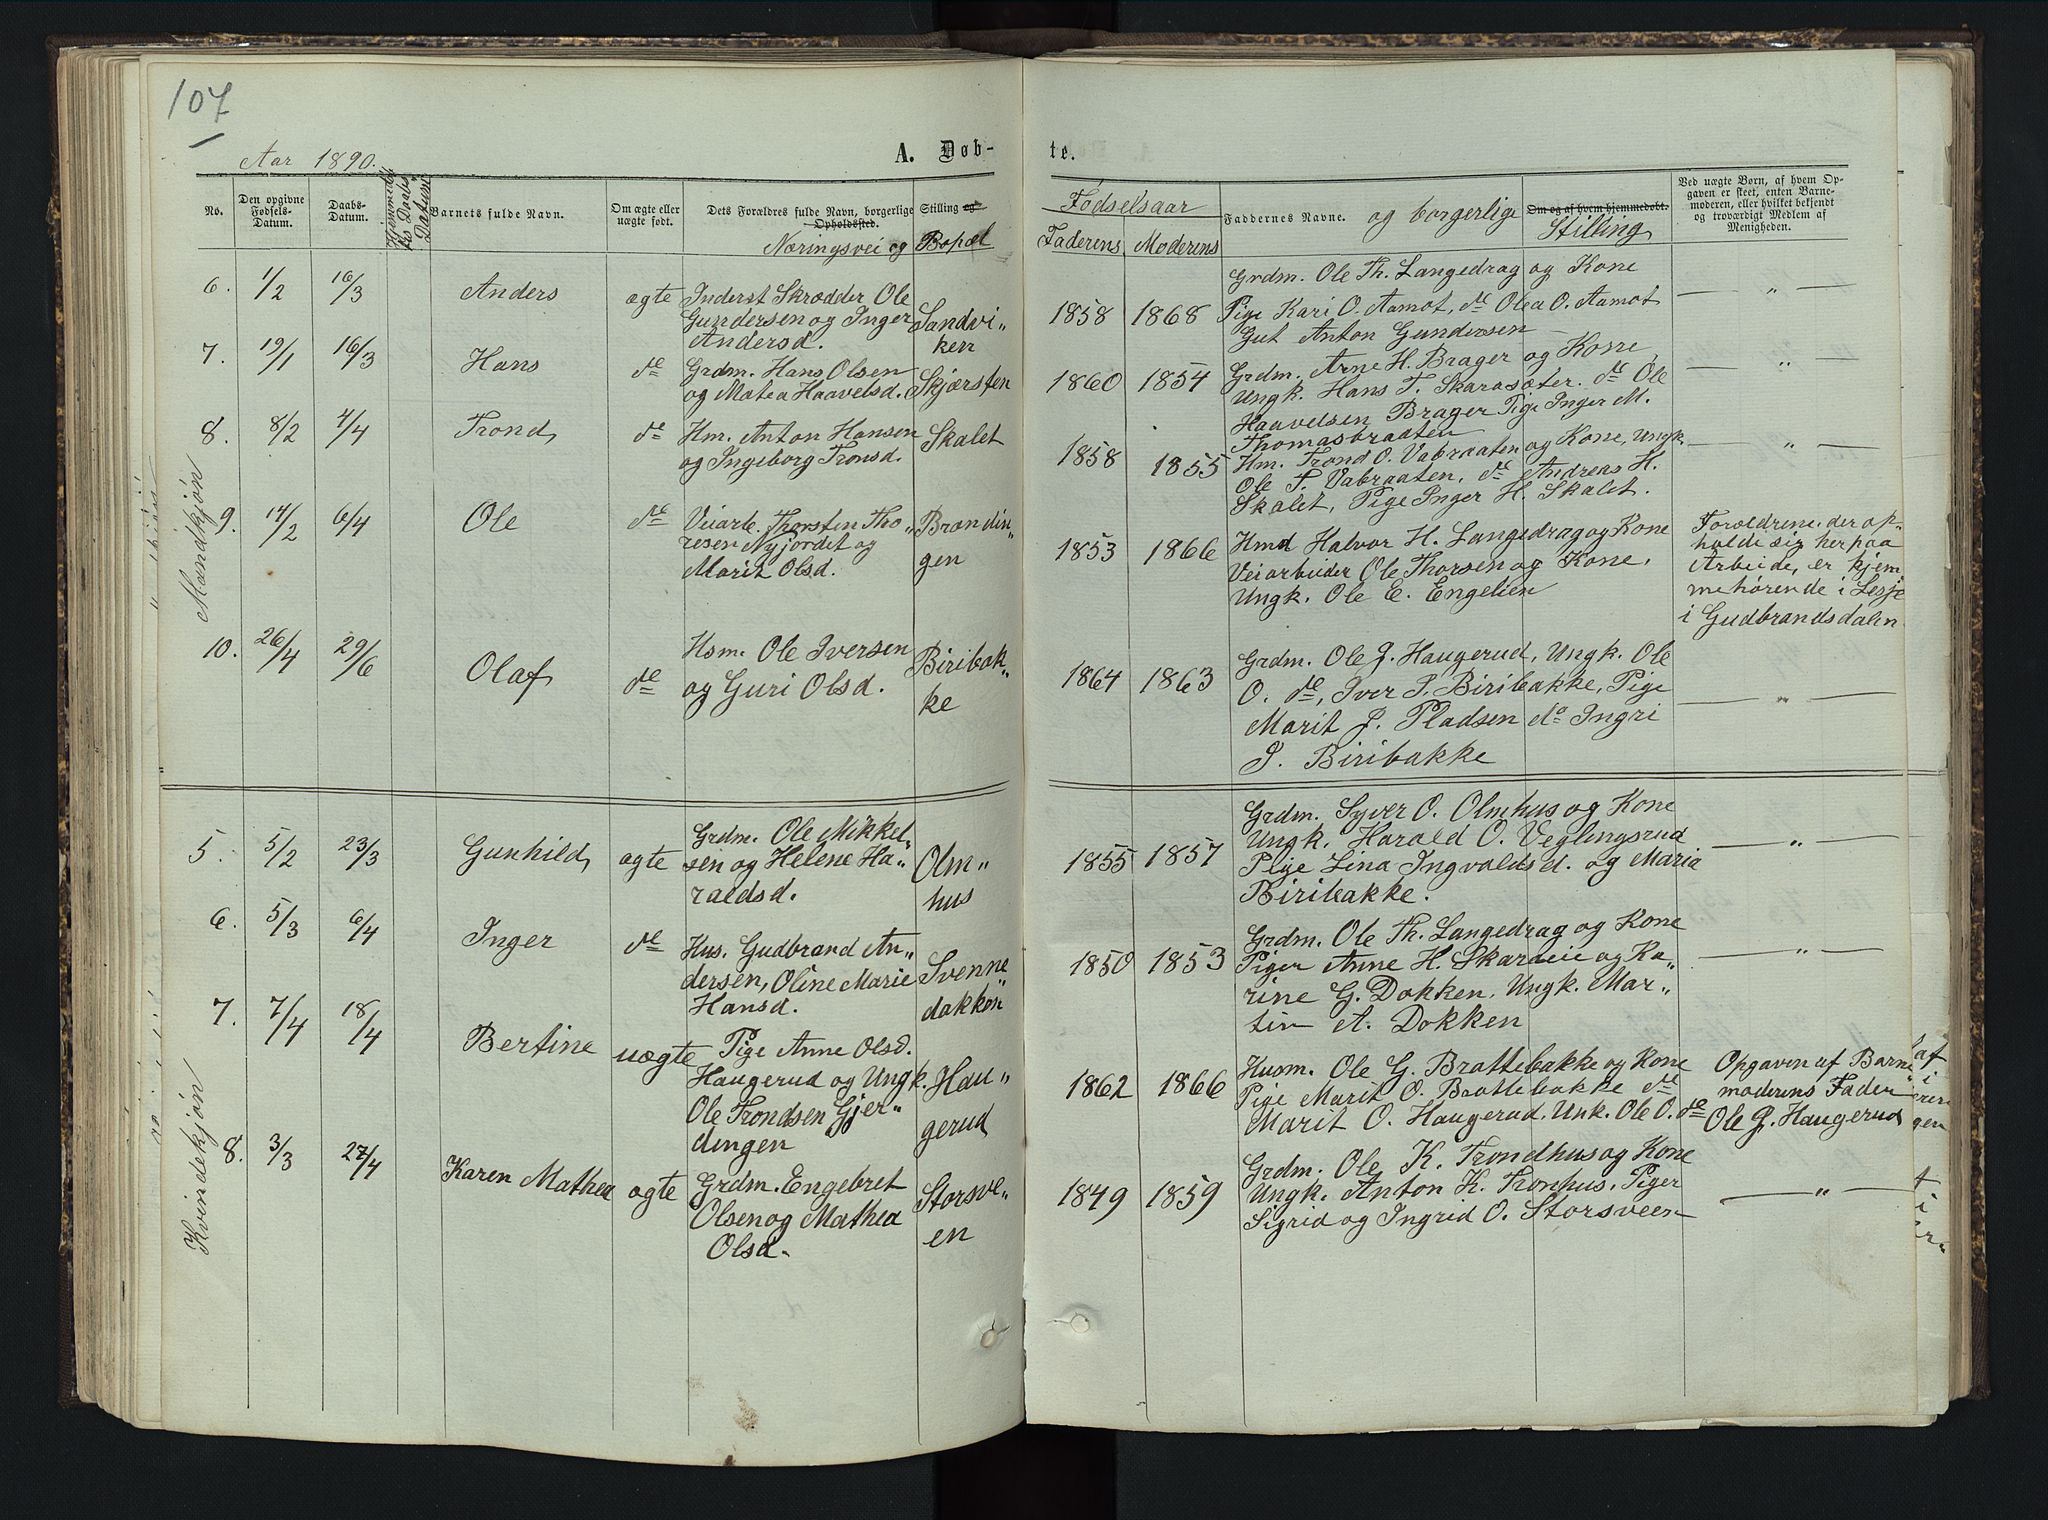 107
Aar 1890.
A. Døb-
te.
No.
Den opgivne Fødsels-Datum.
Daabs-Datum.
Hjemmedøb
Daabs
Datum
Barnets fulde Navn.
Om ægte eller uægte født.
Dets Forældres fulde Navn, borgerlige Stilling og Opholdssted.
Næringsvei og Bopæl
Fødselsaar
Faderens Moderens
Faddernes Navne. og borgerlige Stilling
Om og af hvem hjemmedøbt.
Ved uægte Børn, af hvem Op-
gaven er skeet, enten Barne-
moderen, eller hvilket bekjendt
og troværdigt Medlem af
Menigheden.
Mandkjøn
6. 1/2 16/3 Anders ægte Inderst Skrædder Ole
Gundersen og Inger
Andersd.
Sandvi"
ken
1858 1868
Grdm. Ole Th. Langedrag og Kone
Pige Kari O. Aamot, de Olea O. Aamot
Gut Anton Gundersen
— " —
7. 19/1 16/3 Hans de Grdm. Hans Olsen
og Matea Haavelsd. Skjærsten
1860 1854
Grdm. Arne H. Brager og Kone,
Ungk. Hans T. Skarasæter. de Ole
Haavelsen Brager Pige Inger M.
Thomasbraaten
— " —
8. 8/2 4/4 Trond de Hm. Anton Hansen
og Ingeborg Tronsd.
Skalet
1858 1855
Hm. Trond O. Vabraaten og Kone, Ungk.
Ole T. Vabraaten, de Andreas H.
Skalet, Pige Inger H. Skalet.
— " —
9. 14/2 6/4 Ole de Veiarb. Thorsten Tho"
resen Nyjordet og
Marit Olsd.
Brændin"
gen
1853 1866
Hmd Halvor H. Langedrag og Kone
Veiarbeider Ole Thorsen og Kone,
Ungk. Ole E. Engelien
Forældrene, der op"
holde sig her paa
Arbeide, er hjem
mehørende i Lesje
i Gudbrandsdalen
10. 26/4 29/6 Olaf de Hsm. Ole Iversen
og Guri Olsd.
Biribak"
ke
1864 1863
Grdm. Ole J. Haugerud, Ungk. Ole
O. de, Iver P. Biribakke, Pige
Marit J. Pladsen do Ingri
J. Biribakke
— " —
Kvindekjøn
5. 5/2 23/3 Gunhild ægte Grdm. Ole Mikkel"
sen og Helene Ha"
raldsd.
Olm"
hus
1855 1857
Grdm. Syver O. Olmhus og Kone
Ungk. Harald O. Veglingsrud
Pige Lina Ingvaldsd. og Maria
Biribakke.
— " —
6. 5/3 6/4 Inger de Hus. Gudbrand An"
dersen, Oline Marie
Hansd.
Svenne"
dokken
1850 1853
Grdm. Ole Th. Langedrag og Kone
Piger Anne H. Skareie og Ka"
rine G. Dokken, Ungk. Mar"
tin A. Dokken
— " —
7. 7/4 18/4 Bertine uægte Pige Anne Olsd.
Haugerud og Ungk.
Ole Trondsen Gjer"
dingen
Hau"
gerud
1862 1866
Husm. Ole G. Brattebakke og Kone
Pige Marit O. Brattebakke de
Marit O. Haugerud, Unk. Ole O. de
Opgaven af Barne"
moderens Fader
Ole J. Haugerud
8. 3/3 27/4 Karen Mathea ægte Grdm. Engebret
Olsen og Mathea
Olsd.
Storsve"
en
1849 1859
Grdm. Ole K. Trondhus og Kone
Ungk. Anton K. Tronhus, Piger
Sigrid og Ingrid O. Storsveen
— " —